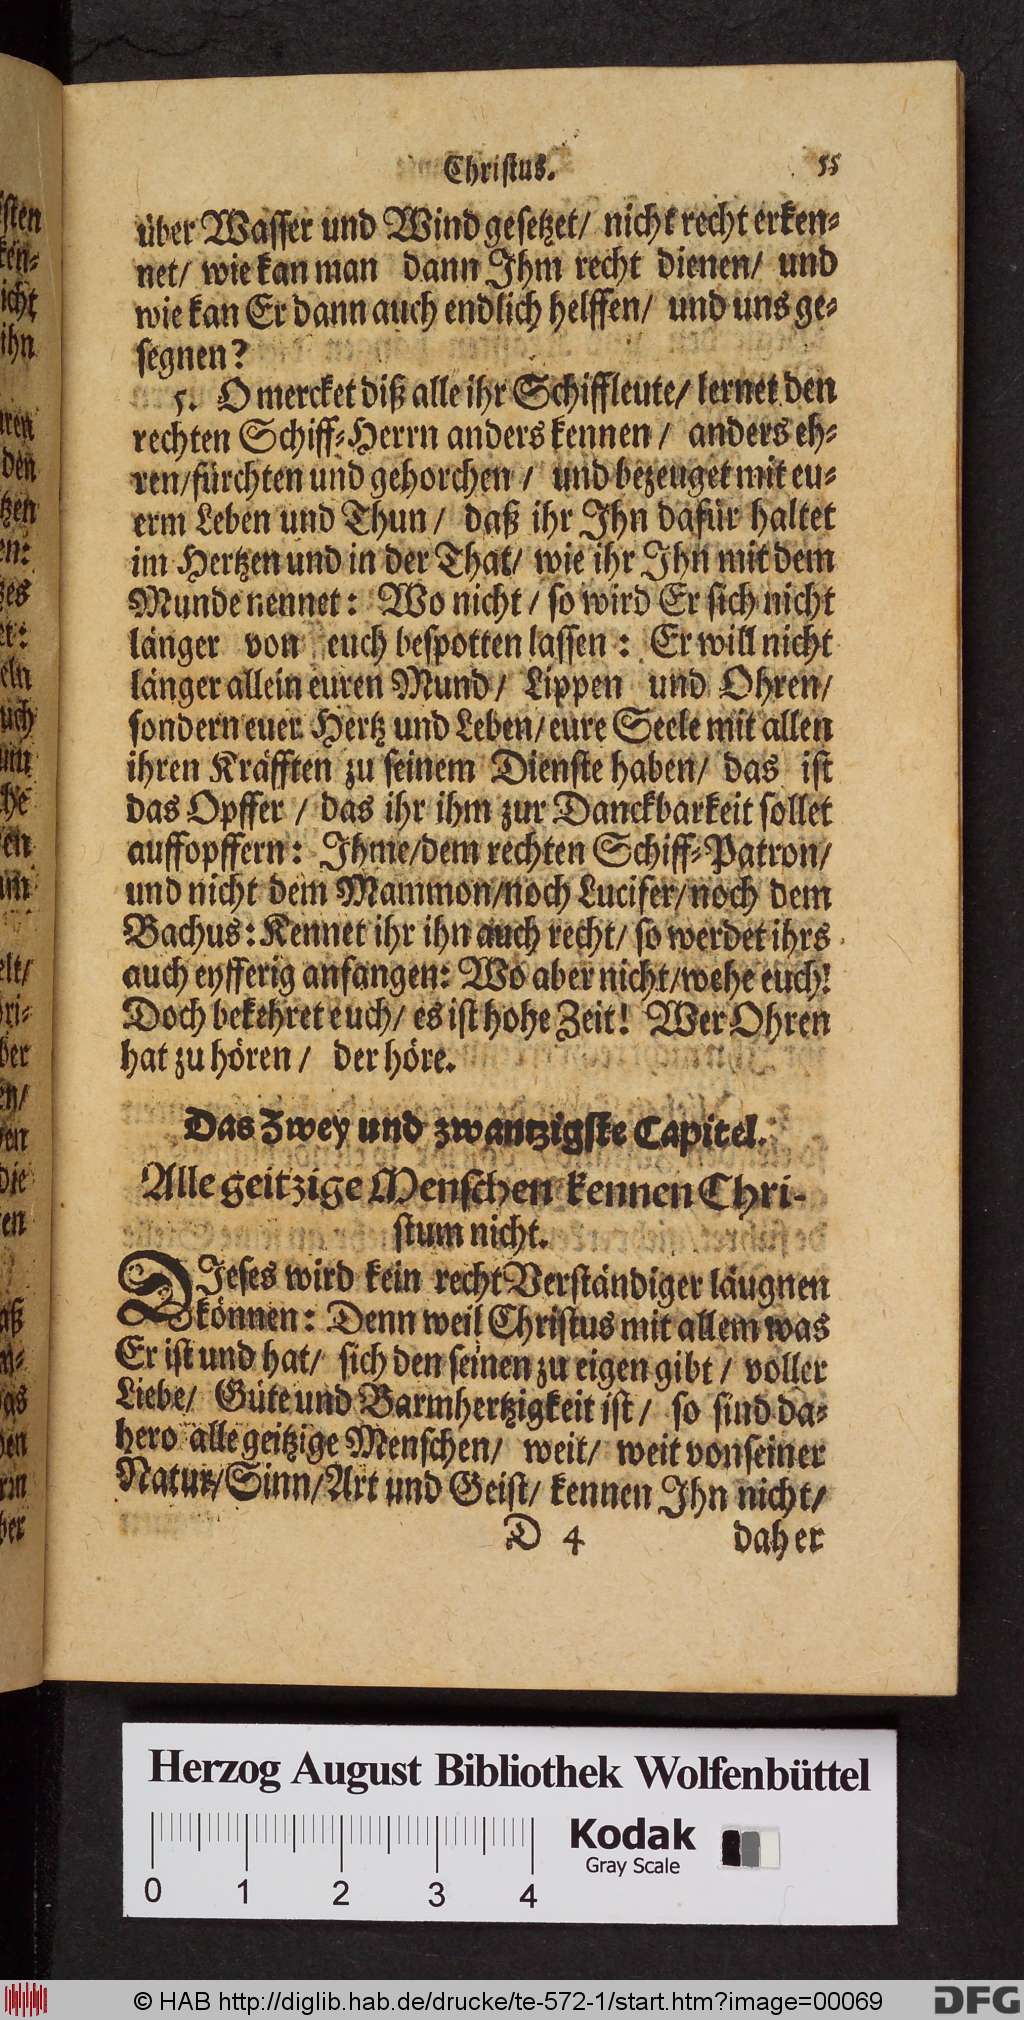 Christus. 55
über Wasser und Wind gesetzet/ nicht recht erken-
net/ wie kan man dann Ihm recht dienen/ und
wie kan Er dann auch endlich helffen/ und uns ge-
segnen?
5. O mercket diß alle ihr Schiffleute/ lernet den
rechten Schiff-Herrn anders kennen/ anders eh-
ren/fürchten und gehorchen/ und bezeuget mit eu-
erm Leben und Thun/ daß ihr Ihn dafür haltet
im Hertzen und in der That/ wie ihr Ihn mit dem
Munde nennet: Wo nicht/ so wird Er sich nicht
länger von euch bespotten lassen: Er will nicht
länger allein euren Mund/ Lippen und Ohren/
sondern euer Hertz und Leben/eure Seele mit allen
ihren Kräfften zu seinem Dienste haben/ das ist
das Opffer/ das ihr ihm zur Danckbarkeit sollet
auffopffern: Ihme/dem rechten Schiff-Patron/
und nicht dem Mammon/noch Lucifer/noch dem
Bachus: Kennet ihr ihn auch recht/ so werdet ihrs
auch eyfferig anfangen: Wo aber nicht/wehe euch!
Doch bekehret euch/ es ist hohe Zeit! Wer Ohren
hat zu hören/ der höre.
Das Zwey und zwantzigste Capitel.
Alle geitzige Menschen kennen Chri-
stum nicht.
DIeses wird kein recht Verständiger läugnen
können: Denn weil Christus mit allem was
Er ist und hat/ sich den seinen zu eigen gibt/ voller
Liebe/ Güte und Barmhertzigkeit ist/ so sind da-
hero alle geitzige Menschen/ weit/ weit von seiner
Natur/Sinn/Art und Geist/ kennen Ihn nicht/
D 4 daher
Herzog August Bibliothek Wolfenbüttel
Kodak
Gray Scale
0 1 2 3 4
© HAB http://diglib.hab.de/drucke/te-572-1/start.htm?image=00069
DFG